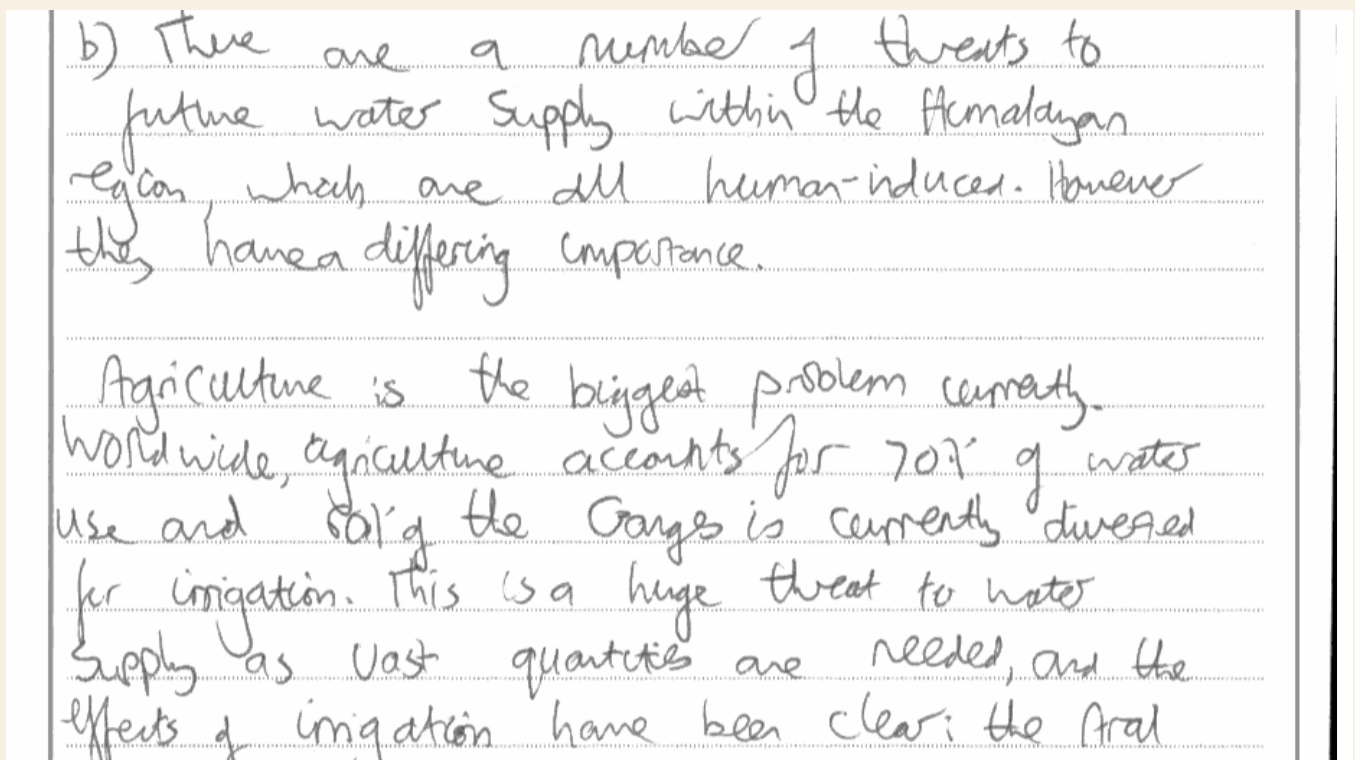 b) There are a number of threats to
future water supply within the Himalayan
region, which are all human-induced. However
they have a differing importance.
Agriculture is the biggest problem currently.
Worldwide, agriculture accounts for 70% of water
use and 60% of the Ganges is currently diverted
for irrigation. This is a huge threat to water
supply as vast quantities are needed, and the
effects of irrigation have been clear: the Aral